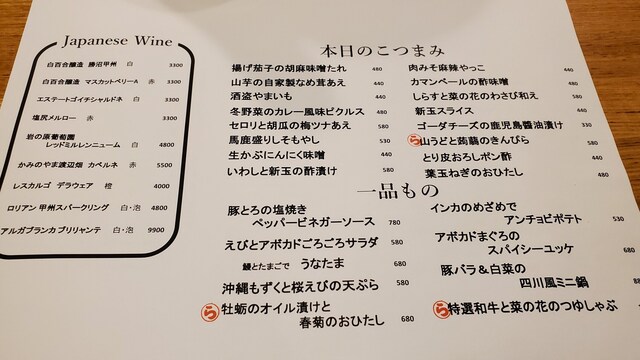 Japanese Wine
白百合醸造 勝沼甲州 白 3300
白百合醸造 マスカットベリーA 赤 3300
エステートゴイチシャルドネ 白 3300
塩尻メルロー 赤 3300
岩の原葡萄園
レッドミルレンニューム 白 4800
かみのやま渡辺畑 カベルネ 赤 5500
レスカルゴ デラウェア 橙 4000
ロリアン 甲州スパークリング 白・泡 4800
アルガブランカ ブリリャンテ 白・泡 9900
本日のこつまみ
揚げ茄子の胡麻味噌たれ 480
山芋の自家製なめ茸あえ 440
酒盗やまいも 440
冬野菜のカレー風味ピクルス 480
セロリと胡瓜の梅ツナあえ 580
馬鹿盛りしそもやし 580
生かぶにんにく味噌 440
いわしと新玉の酢漬け 580
肉みそ麻辣やっこ 440
カマンベールの酢味噌 480
しらすと菜の花のわさび和え 580
新玉スライス 440
ゴーダチーズの鹿児島醤油漬け 330
ら 山うどと蒟蒻のきんぴら 580
とり皮おろしポン酢 440
葉玉ねぎのおひたし 480
一品もの
豚とろの塩焼き
ペッパービネガーソース 780
えびとアボカドごろごろサラダ 580
鰻とたまごで うなたま 680
沖縄もずくと桜えびの天ぷら 580
ら 牡蛎のオイル漬けと
春菊のおひたし 680
インカのめざめで
アンチョビポテト 530
アボカドまぐろの
スパイシーユッケ 680
豚バラ&白菜の
四川風ミニ鍋
ら 特選和牛と菜の花のつゆしゃぶ